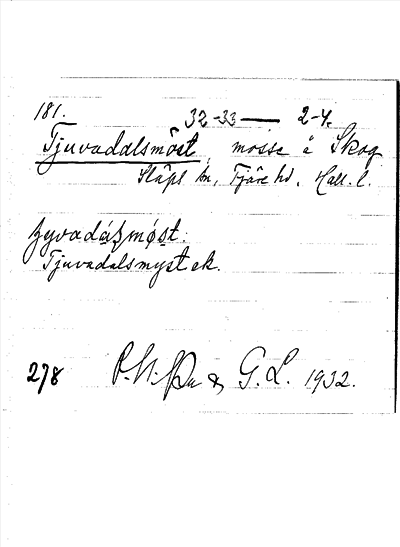 181.
32-33 — 2-4.
Tjuvadalsmöst, mosse å Skog
Släps sn, Fjäre hd. Hall. l.
Tjuvadalsmyst ek.
278 & G. L. 1932.